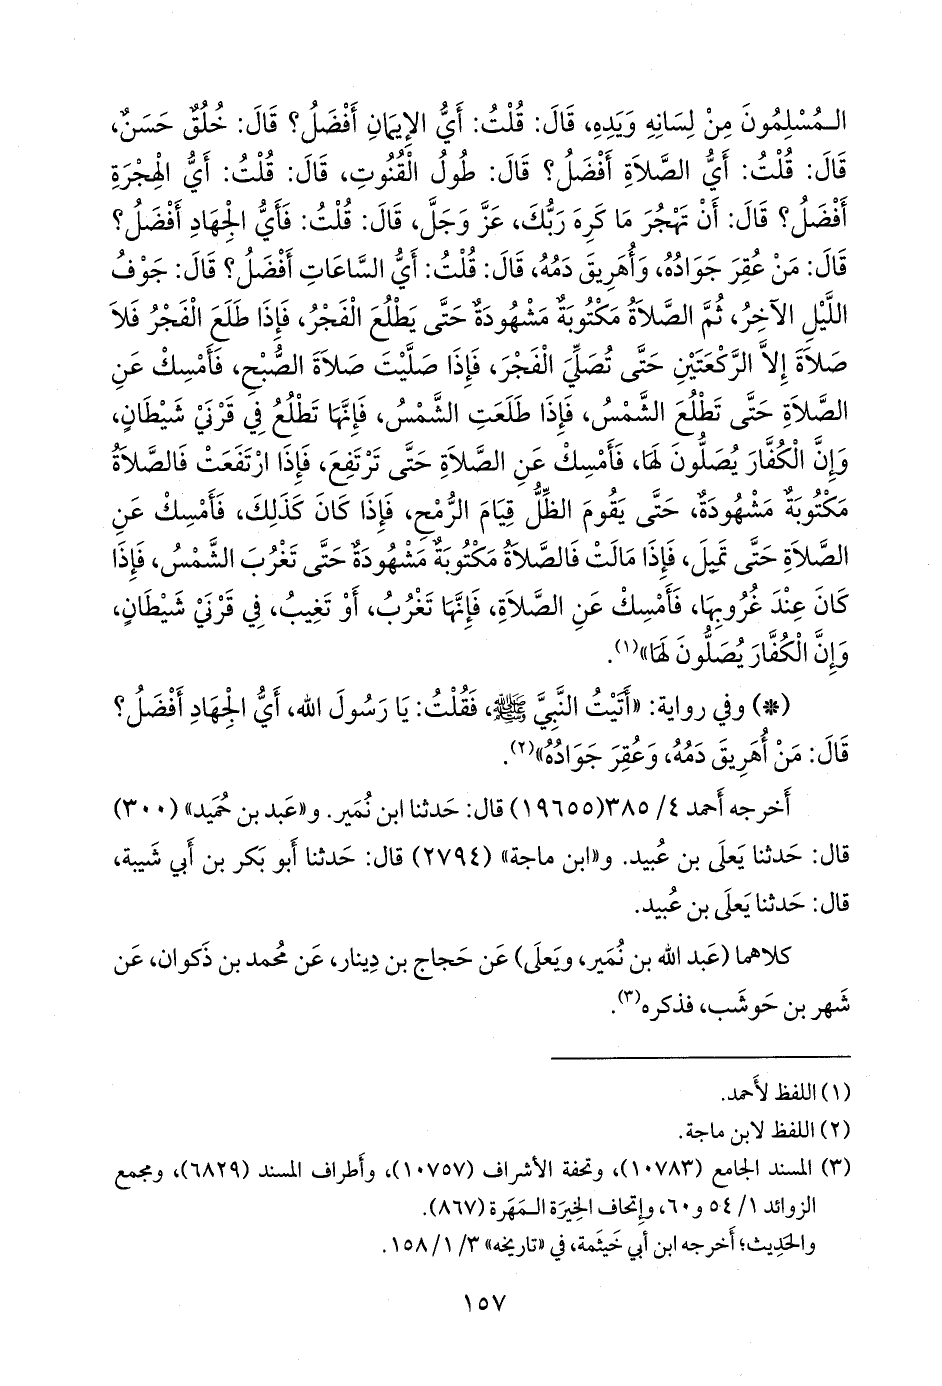 الـمُسْلِمُونَ مِنْ لِسَانِهِ وَيَدِهِ، قَالَ: قُلْتُ: أَيُّ الإِيمَانِ أَفْضَلُ؟ قَالَ: خُلُقٌ حَسَنٌ،
قَالَ: قُلْتُ: أَيُّ الصَّلَاةِ أَفْضَلُ؟ قَالَ: طُولُ الْقُنُوتِ، قَالَ: قُلْتُ: أَيُّ الْهِجْرَةِ
أَفْضَلُ؟ قَالَ: أَنْ تَهْجُرَ مَا كَرِهَ رَبُّكَ، عَزَّ وَجَلَّ، قَالَ: قُلْتُ: فَأَيُّ الْجِهَادِ أَفْضَلُ؟
قَالَ: مَنْ عُقِرَ جَوَادُهُ، وَأُهَرِيقَ دَمُهُ، قَالَ: قُلْتُ: أَيُّ السَّاعَاتِ أَفْضَلُ؟ قَالَ: جَوْفُ
اللَّيْلِ الآخِرُ، ثُمَّ الصَّلَاةُ مَكْتُوبَةٌ مَشْهُودَةٌ حَتَّى يَطْلُعَ الْفَجْرُ، فَإِذَا طَلَعَ الْفَجْرُ فَلَا
صَلَاةَ إِلاَّ الرَّكْعَتَيْنِ حَتَّى تُصَلِّيَ الْفَجْرَ، فَإِذَا صَلَّيْتَ صَلَاةَ الصُّبْحِ، فَأَمْسِكْ عَنِ
الصَّلَاةِ حَتَّى تَطْلُعَ الشَّمْسُ، فَإِذَا طَلَعَتِ الشَّمْسُ، فَإِنَّهَا تَطْلُعُ فِي قَرْنَيْ شَيْطَانٍ،
وَإِنَّ الْكُفَّارَ يُصَلُّونَ لَهَا، فَأَمْسِكْ عَنِ الصَّلَاةِ حَتَّى تَرْتَفِعَ، فَإِذَا ارْتَفَعَتْ فَالصَّلَاةُ
مَكْتُوبَةٌ مَشْهُودَةٌ، حَتَّى يَقُومَ الظِّلُّ قِيَامَ الرُّمْحِ، فَإِذَا كَانَ كَذَلِكَ، فَأَمْسِكْ عَنِ
الصَّلَاةِ حَتَّى تَمِيلَ، فَإِذَا مَالَتْ فَالصَّلَاةُ مَكْتُوبَةٌ مَشْهُودَةٌ حَتَّى تَغْرُبَ الشَّمْسُ، فَإِذَا
كَانَ عِنْدَ غُرُوبِهَا، فَأَمْسِكْ عَنِ الصَّلَاةِ، فَإِنَّهَا تَغْرُبُ، أَوْ تَغِيبُ، فِي قَرْنَيْ شَيْطَانٍ،
وَإِنَّ الْكُفَّارَ يُصَلُّونَ لَهَا»(١).
(*) وفي رواية: «أَتَيْتُ النَّبِيَّ ﷺ، فَقُلْتُ: يَا رَسُولَ الله، أَيُّ الْجِهَادِ أَفْضَلُ؟
قَالَ: مَنْ أُهَرِيقَ دَمُهُ، وَعُقِرَ جَوَادُهُ»(٢).
أَخرجه أَحمد ٤/ ٣٨٥(١٩٦٥٥) قال: حَدثنا ابن نُمَير. و«عَبد بن حُمَيد» (٣٠٠)
قال: حَدثنا يَعلَى بن عُبيد. و«ابن ماجة» (٢٧٩٤) قال: حَدثنا أَبو بَكر بن أَبي شَيبة،
قال: حَدثنا يَعلَى بن عُبيد.
كلاهما (عَبد الله بن نُمَير، ويَعلَى) عَن حَجاج بن دِينار، عَن محُمد بن ذَكوان، عَن
شَهر بن حَوشَب، فذكره(٣).
(١) اللفظ لأَحمد.
(٢) اللفظ لابن ماجة.
(٣) المسند الجامع (١٠٧٨٣)، وتحفة الأشراف (١٠٧٥٧)، وأَطراف المسند (٦٨٢٩)، ومجمع
الزوائد ١/ ٥٤ و٦٠، وإِتحاف الخِيرَة الـمَهَرة (٨٦٧).
والحَدِيث؛ أَخرجه ابن أبي خَيثَمة، في «تاريخه» ٣/ ١/ ١٥٨.
١٥٧